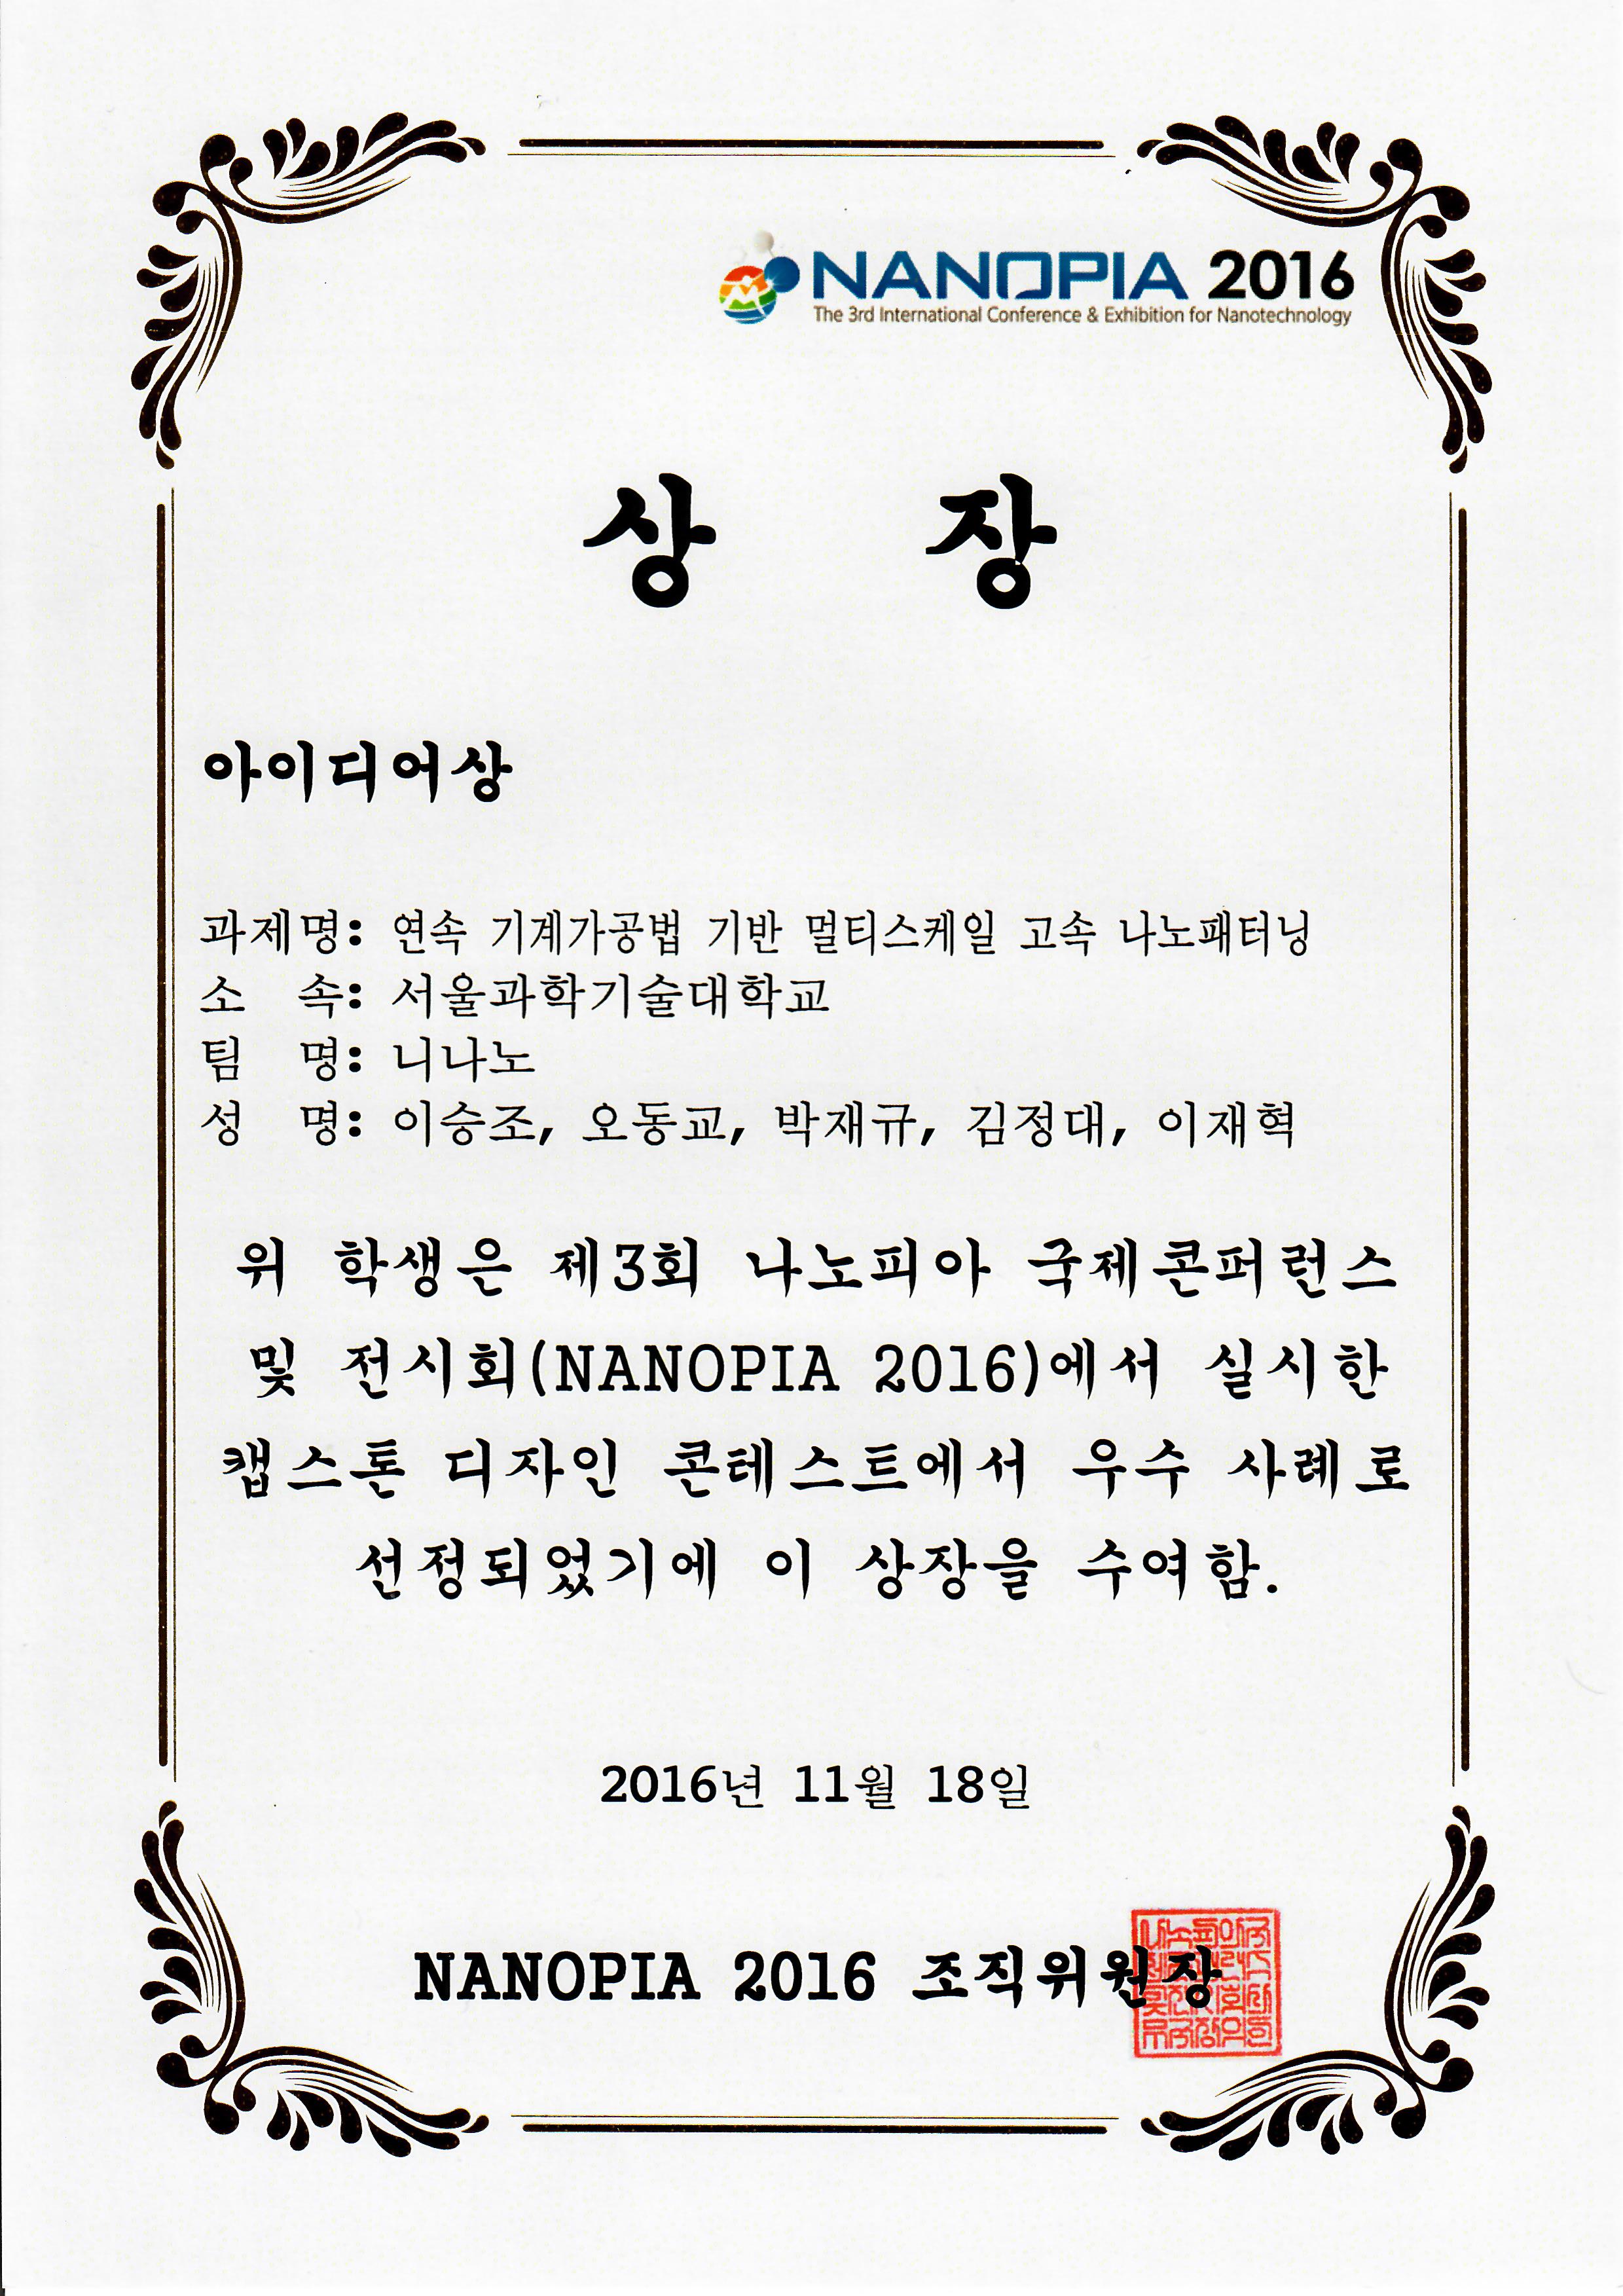 NANOPIA 2016
The 3rd International Conference & Exhibition for Nanotechnology
상 장
아이디어상
과제명: 연속 기계가공법 기반 멀티스케일 고속 나노패터닝
소 속: 서울과학기술대학교
팀 명: 니나노
성 명: 이승조, 오동교, 박재규, 김정대, 이재혁
위 학생은 제3회 나노피아 국제콘퍼런스
및 전시회(NANOPIA 2016)에서 실시한
캡스톤 디자인 콘테스트에서 우수 사례로
선정되었기에 이 상장을 수여함.
2016년 11월 18일
NANOPIA 2016 조직위원장